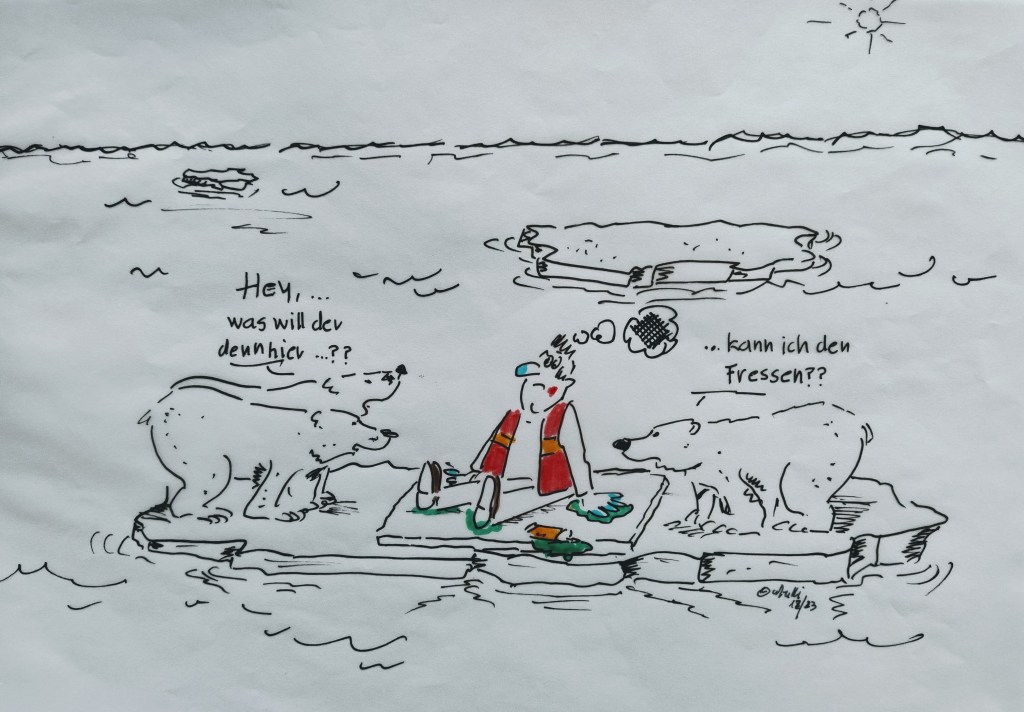 Hey, ...
was will der
denn hier ...??
... kann ich den
Fressen??
©
12/23